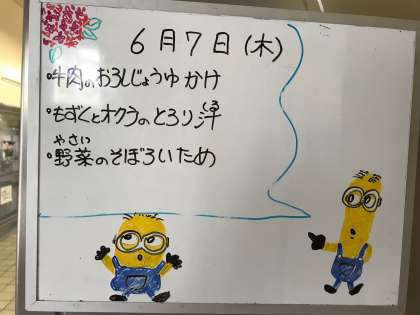 6月7日(木)
・牛肉のおろしじょうゆかけ
・もずくとオクラのとろり汁
じる
・野菜のそぼろいため
やさい